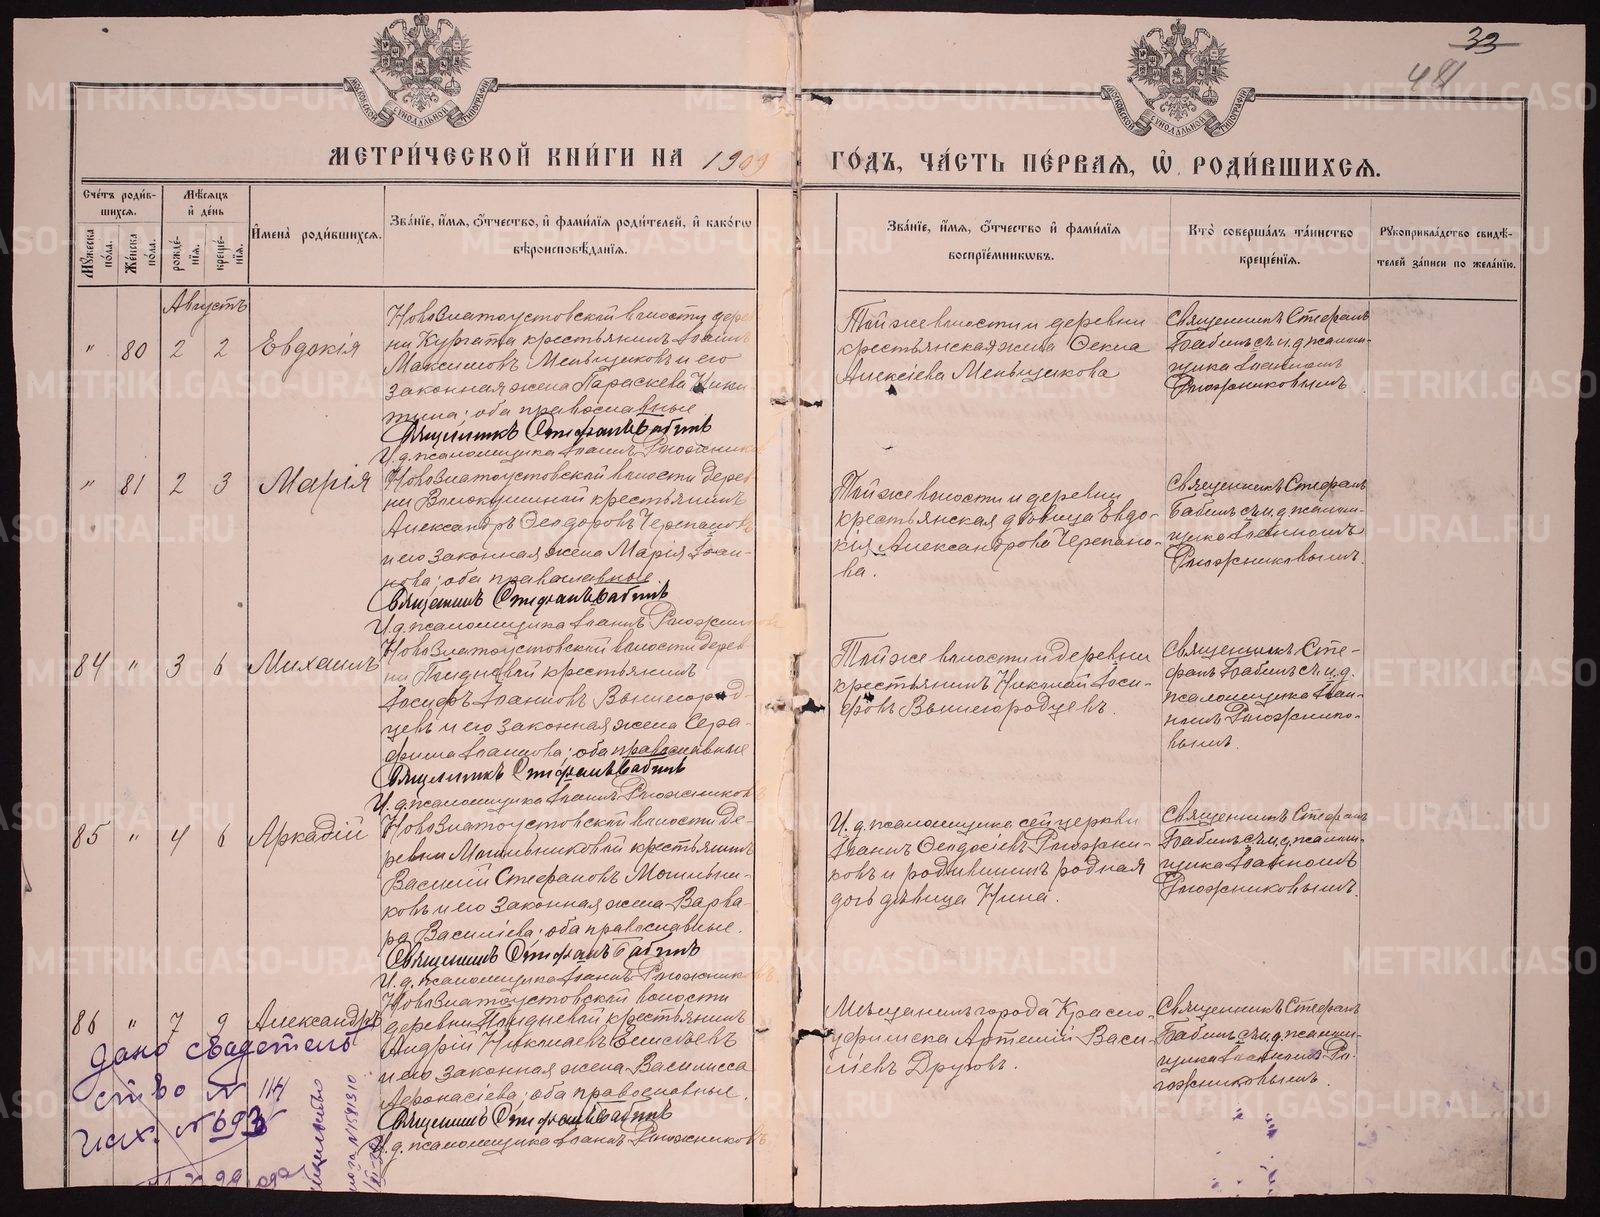 33
481
МОСКОВСКОЙ СѴНОДАЛЬНОЙ ТИПОГРАФІИ
МОСКОВСКОЙ СѴНОДАЛЬНОЙ ТИПОГРАФІИ
МЕТРИ́ЧЕСКОЙ КНИ́ГИ НА 1909
ГО́ДЪ, ЧА́СТЬ ПЕ́РВАЯ, Ѡ҆ РОДИ́ВШИХСЯ.
Сче́тъ роди́в-
шихся.
Мꙋ́жеска по́ла.
Же́нска по́ла.
Мѣ́сяцъ
и҆ де́нь
рожде́-
нїя.
креще́-
нїя.
И҆мена̀ роди́вшихся.
Зва́нїе, и҆́мя, ѻ҆́тчество, и҆ фами́лїя роди́телей, и҆ како́гѡ
вѣроисповѣ́данїя.
Зва́нїе, и҆́мя, ѻ҆́тчество и҆ фами́лїя
воспрїе́мникѡвъ.
Кто̀ соверша́лъ та́инство
креще́нїя.
Рꙋкоприкла́дство свидѣ́-
телей за́писи по жела́нїю.
Августъ
" 80 2 2 Евдокія
Новозлатоустовской волости дерев
ни Кургата крестьянинъ Іоаннъ
Максимовъ Меньщиковъ и его
законная жена Параскева Ники
тина; оба православные
Священникъ Стефанъ Бабинъ
И. д. псаломщика Іоаннъ Рогожников
Той же волости и деревни
крестьянская жена Фекла
Алексіева Меньщикова
Священникъ Стефанъ
Бабинъ съ и. д. псалом-
щика Іоанномъ
Рогожниковымъ.
" 81 2 3 Марія
Новозлатоустовской волости дерев
ни Волокушиной крестьянинъ
Александръ Ѳеодоровъ Черепановъ
и его законная жена Марія Іоан-
нова; оба православные.
Священникъ Стефанъ Бабинъ
И. д. псаломщика Іоаннъ Рогожников
Той же волости и деревни
крестьянская дѣвица Евдо-
кія Александрова Черепано-
ва.
Священникъ Стефанъ
Бабинъ съ и. д. псалом-
щика Іоанномъ
Рогожниковымъ.
84 " 3 6 Михаилъ
Новозлатоустовской волости дерев
ни крестьянинъ
Іосифъ Іоанновъ Вышегород-
цевъ и его законная жена Сера-
фима Іоаннова; оба православные
Священникъ Стефанъ Бабинъ
И. д. псаломщика Іоаннъ Рогожников
Той же волости и деревни
крестьянинъ Николай Іоси-
фовъ Вышегородцевъ.
Священникъ Сте-
фанъ Бабинъ съ и. д.
псаломщика Іоан-
номъ Рогожнико-
вымъ.
85 " 4 6 Аркадій
Новозлатоустовской волости де-
ревни Могильниковой крестьянинъ
Василій Стефановъ Могильни-
ковъ и его законная жена Варва-
ра Василіева; оба православные.
Священникъ Стефанъ Бабинъ
И. д. псаломщика Іоаннъ Рогожниковъ
И. д. псаломщика сей церкви
Іоаннъ Ѳеодосіевъ Рогожни-
ковъ и родившимъ родная
дочь дѣвица Нина.
Священникъ Стефанъ
Бабинъ съ и. д. псалом-
щика Іоанномъ
Рогожниковымъ.
86 " 7 9 Александръ
Новозлатоустовской волости
деревни крестьянинъ
Андрій Николаевъ Елисѣевъ
и его законная жена Василисса
Аѳонасіева; оба православные.
Священникъ Стефанъ Бабинъ
И. д. псаломщика Іоаннъ Рогожниковъ
Мѣщанинъ города Красно-
уфимска Артемій Васи-
ліевъ Друзовъ.
Священникъ Стефанъ
Бабинъ съ и. д. псалом-
щика Іоанномъ Ро-
гожниковымъ.
Дано свидетель
ство №
Исх. № 693